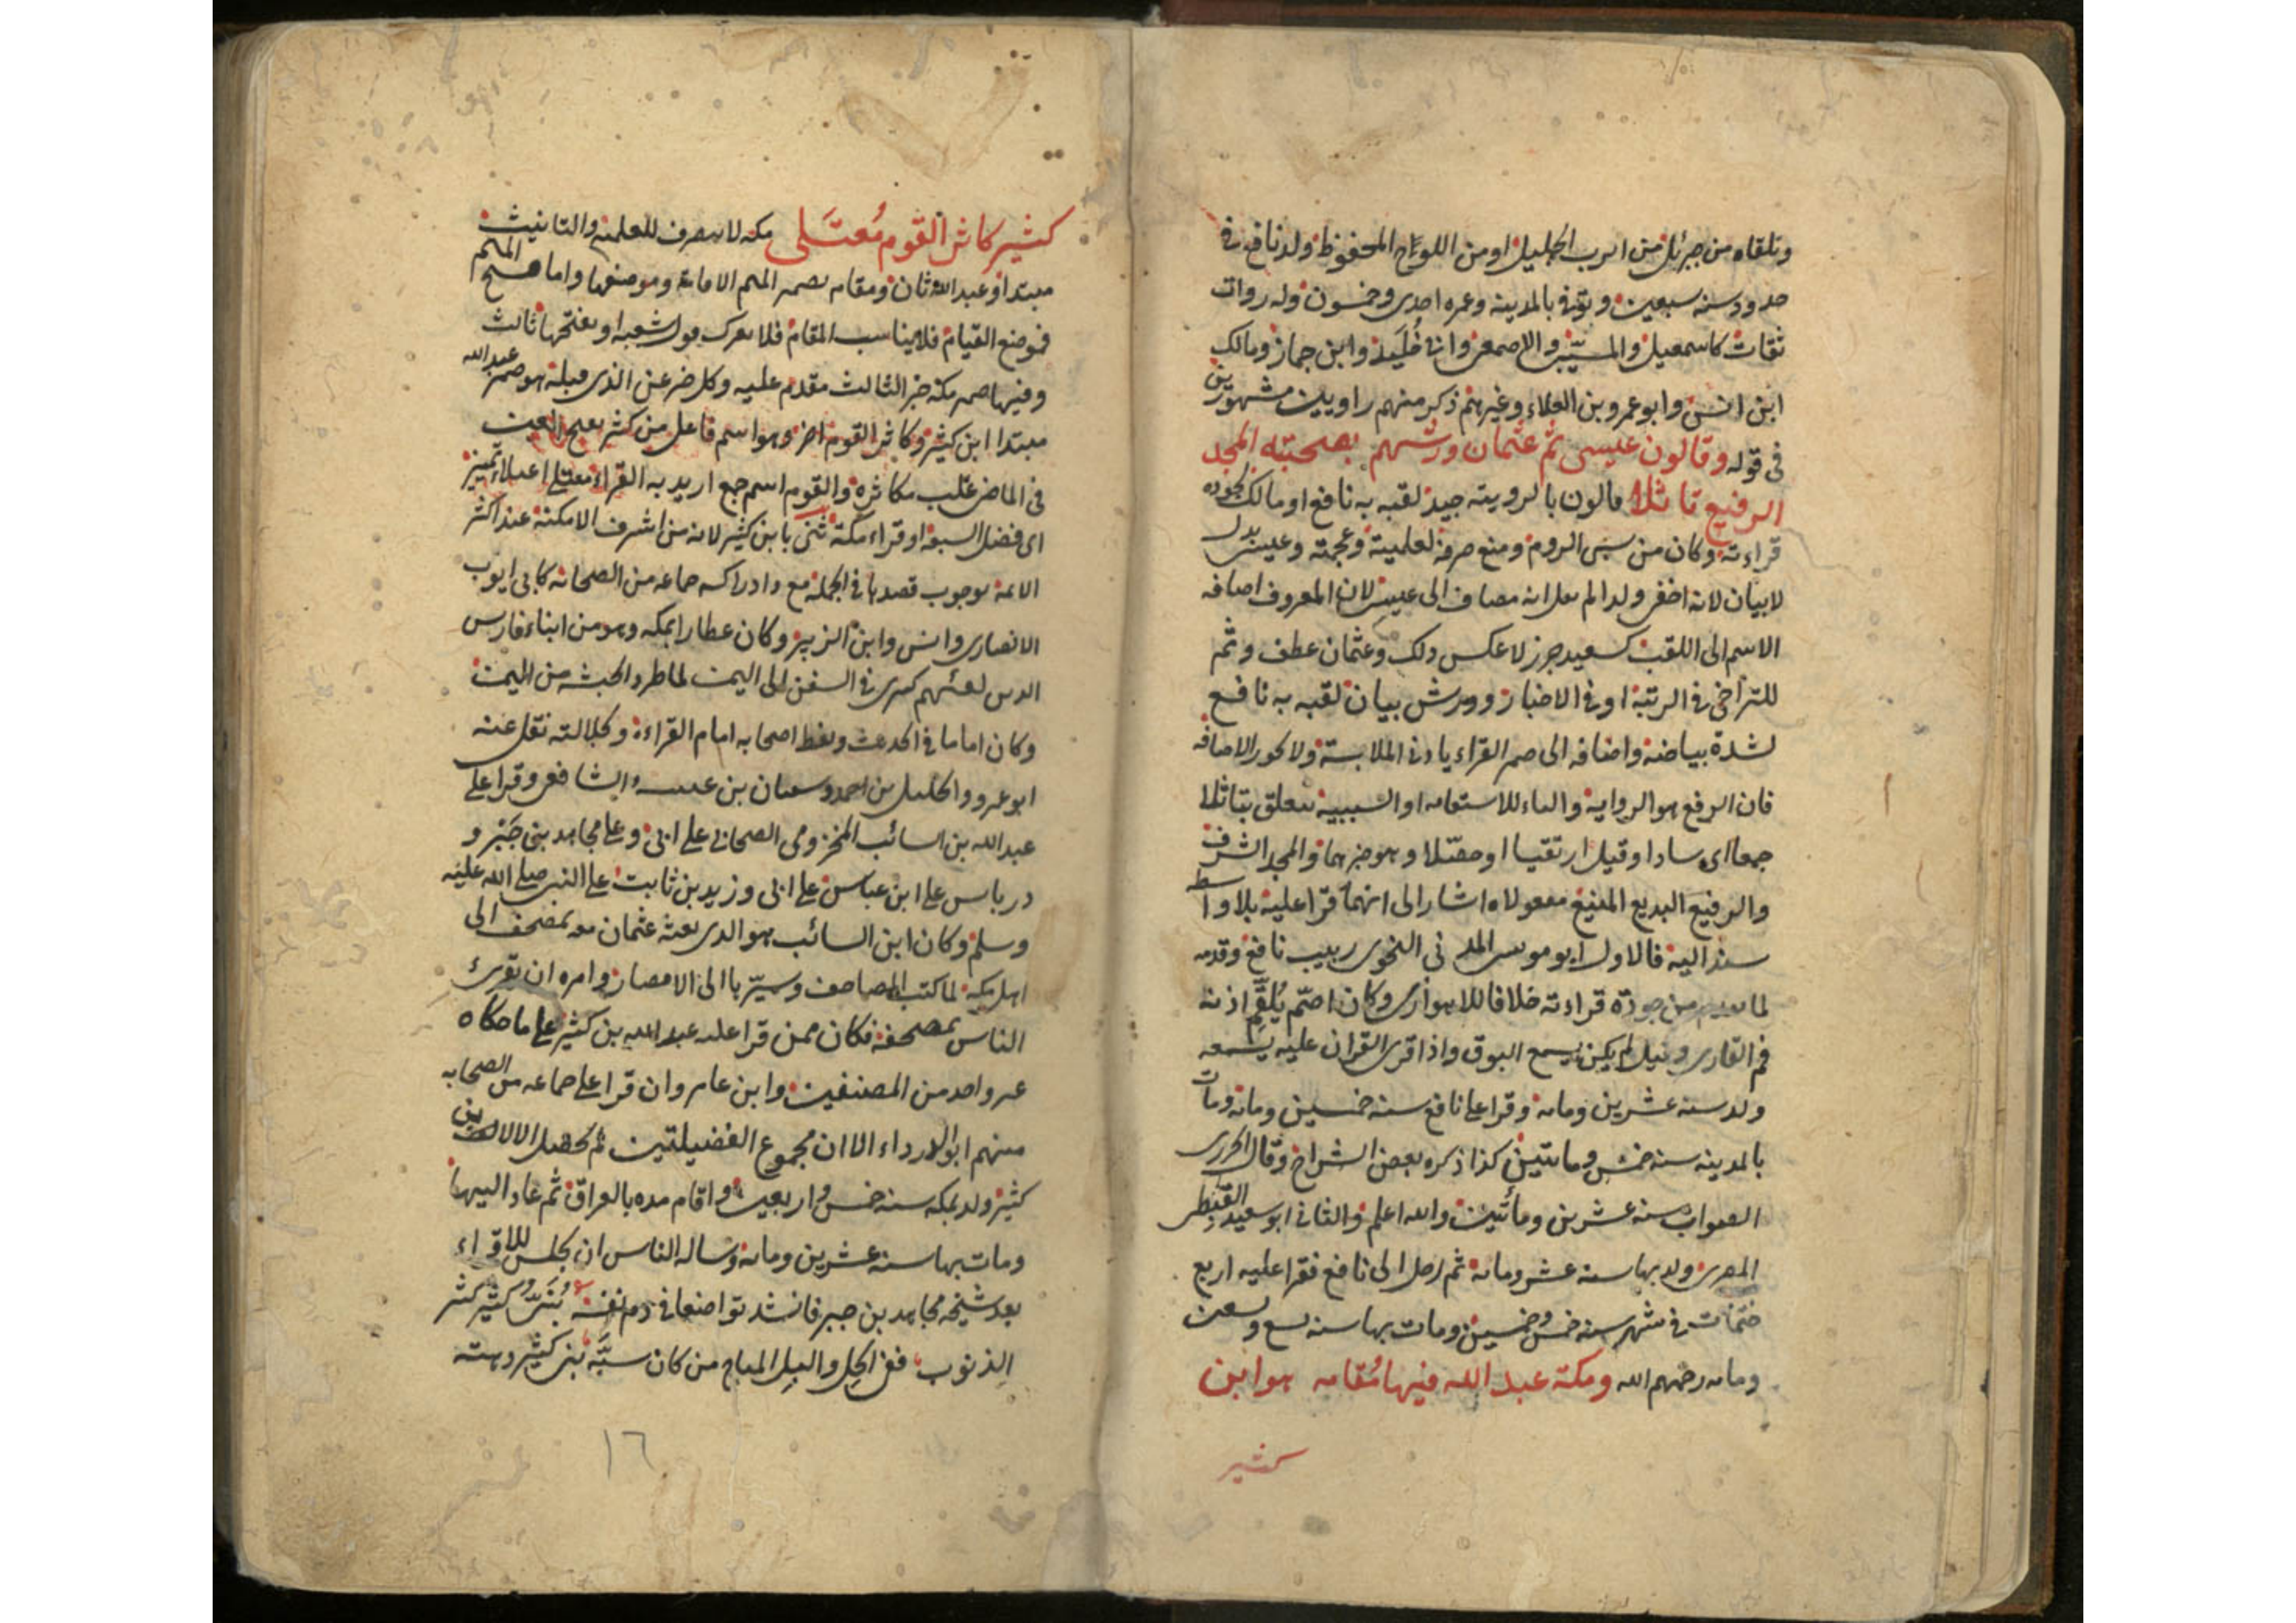 وتلقاه من جبرئل من الرب الجليل او من اللوح المحفوظ ولد نافع في
حدود سنه سبعين وتوفي بالمدينه وعمره احدى وخمسون وله روات
ثقات كاسمعيل والمسيبى والاصمعى وابى خُلَيد وابن جماز ومالك
ابن انس وابو عمرو بن العلاء وغيرهم ذكر منهم راويين مشهورين
فى قوله وقالون عيسى ثم عثمان ورشهم بصحبته المجد
الرفيع تاثلا قالون بالروميته جيد لقبه به نافع او مالك لجوده
قراءته وكان من سبى الروم ومنع صرفه لعلميته وعجمته وعيسى بدل
لا بيان لانه اخفى ولدا لم يعل انه مضاف الى عيسى لان المعروف اضافه
الاسم الى اللقب كسعيد جرز لا عكس ذلك وعثمان عطف وثم
للتراخى فى الرتبة او فى الاخبار وورش بيان لقبه به نافع
لشدة بياضه واضافه الى ضمر القراء بادنى الملابسة ولا كور الاضافه
فان الرفع هو الروايه والباء للاستعانه او السببية يتعلق بتاثلا
جمعا اى سادا وقيل ارتقيا او حصّلا وهو خبرهما والمجد الشرف
والرفيع البديع المنيع مفعولاه اشار الى انهما قرا عليه بلا واسطه
سند اليه فالاول ابو موسى المدنى النحوى ربيب نافع وقدمه
لما تقدم من جودة قراءته خلافا للاهوازى وكان اصم يُلقّم اذنه
فم القارى وقيل لم يكن يسمع البوق واذا قرى القران عليه يسمعه
ولد سنه عشرين ومائه وقرا على نافع سنه خمسين ومائه ومات
بالمدينه سنه خمس ومائتين كذا ذكره بعض الشراح وقال الجزرى
الصواب سنه عشرين ومائتين والله اعلم والثانى ابو سعيد القبطى
المصرى ولد بها سنه عشر ومائه ثم رحل الى نافع فقرا عليه اربع
ختمات فى شهر سنه خمس وخمسين ومات بها سنه سبع وتسعين
ومائه رحمهم الله ومكة عبد الله فيها مُقامه هو ابن
كثير
كثير كاثر القوم مُعتَلى مكه لا يصرف للعلميه والتانيث
مبتدا وعبد الله ثان ومقامه بضم الميم الاقامة وموضعها واما فتح الميم
فموضع القيام فلا يناسب المقام فلا يغرك قول شعبه او بفتحها ثالث
وفيها ضمر مكه خبر الثالث مقدم عليه وكل خبر عن الذى قبله هو ضمر عبد الله
مبتدا ابن كثير وكاثر القوم اخر وهو اسم فاعل من كثر بفتح العين
فى الماضى غلب مكاثره والقوم اسم جمع اريد به القراء معتلى اعتلاء تمييز
اى فضل السبعه او قراء مكة ثنى بابن كثير لانه من اشرف الامكنة عند اكثر
الائمه بوجوب قصدها فى الجمله مع ادراكه جماعه من الصحابه كابى ايوب
الانصارى وانس وابن الزبير وكان عطارا بمكه وهو من ابناء فارس
الذين بعثهم كسرى فى السفن الى اليمن لما طرد الحبشه من اليمن
وكان اماما فى الحديث وبغط اصحابه امام القراءة ولجلالته نقل عنه
ابو عمرو والخليل بن احمد وسفيان بن عيينه والشافعى وقرا على
عبد الله بن السائب المخزومى الصحابى على ابى وعلى مجاهد بن جَبْر و
درباس على ابن عباس على ابى وزيد بن ثابت على النبى صلى الله عليه
وسلم وكان ابن السائب هو الذى بعثه عثمان معه بمصحف الى
اهل مكه لما كتب المصاحف وسيّرها الى الامصار وامره ان يقرئ
الناس بمصحفه فكان ممن قرا عليه عبد الله بن كثير على ما حكاه
غير واحد من المصنفين وابن عامر وان قرا على جماعه من الصحابه
منهم ابو الدرداء الا ان مجموع الفضيلتين لم تحصل الا لابن
كثير ولد بمكه سنه خمس واربعين واقام مده بالعراق ثم عاد اليها
ومات بها سنه عشرين ومائه وساله الناس ان يجلس للاقراء
بعد شيخه مجاهد بن جبر فانشد تواضعا فى ذم نفسه بُنَىَّ كثير كثير
الذنوب ففى الحِل والبِل المباح من كان سبَّه بنى كثير دهته
١٦